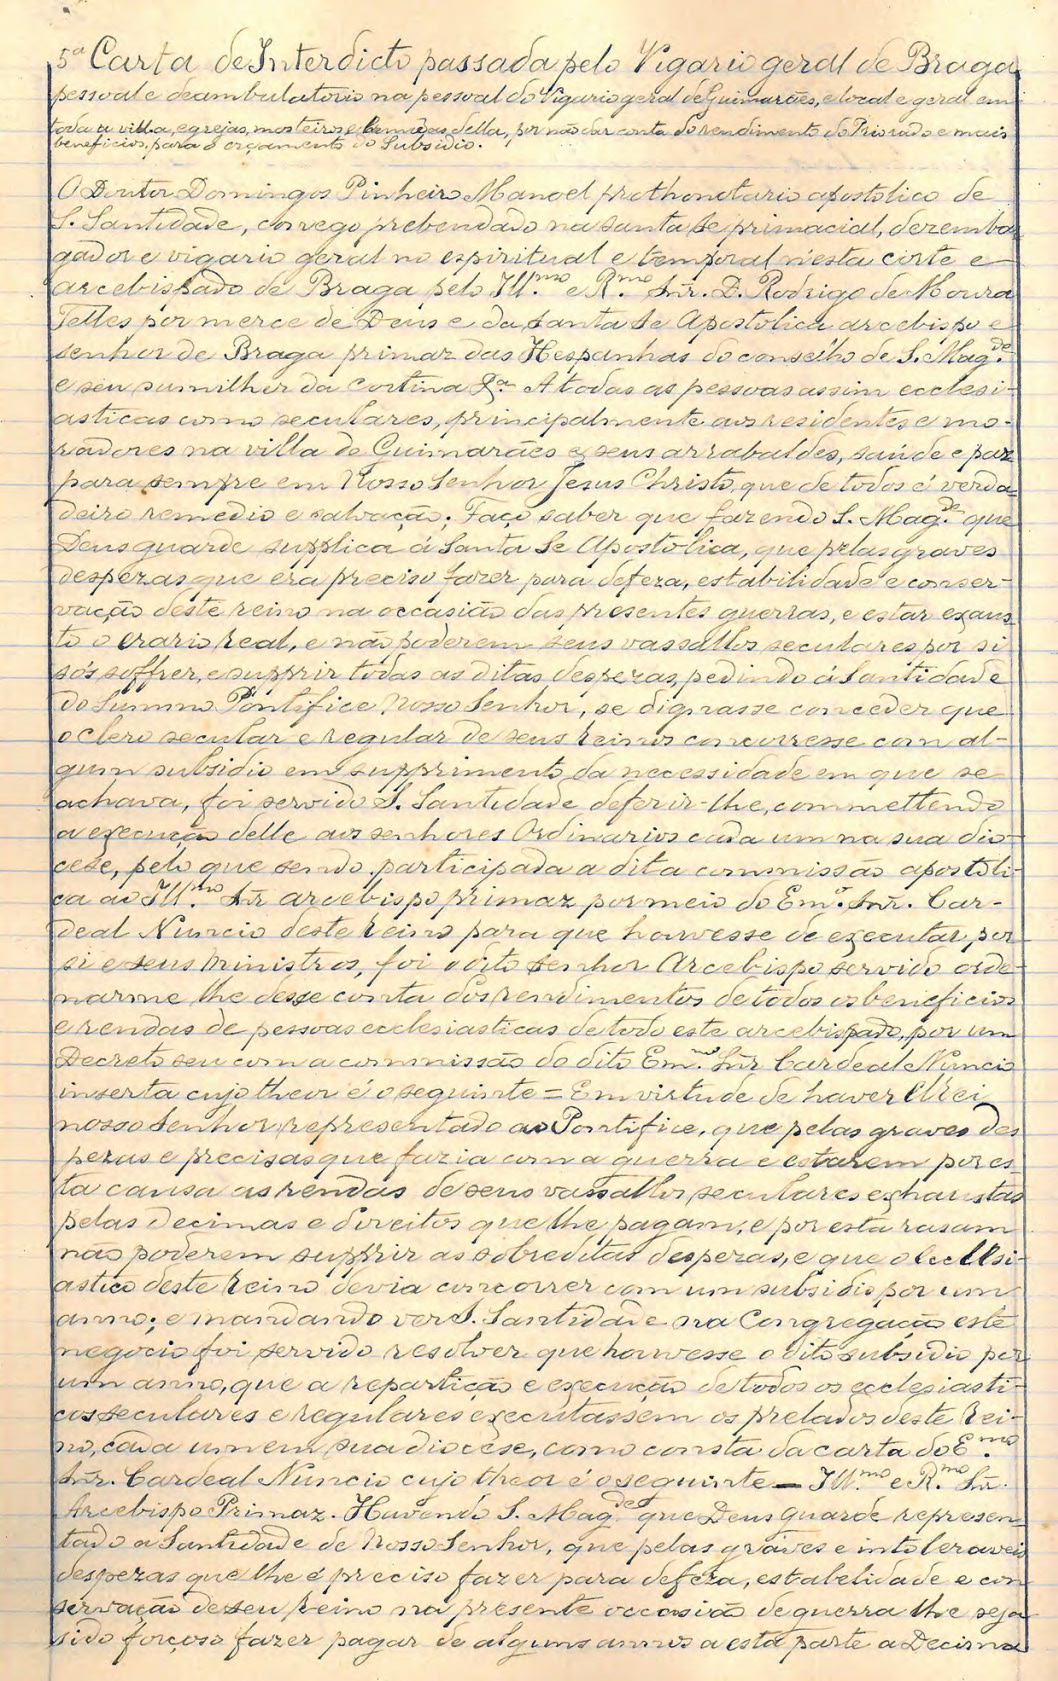 5ª Carta de Interdicto passada pelo Vigario geral de Braga
pessoal e deambulatorio na pessoal do Vigario geral de Guimarães, e local e geral em
toda a villa, egrejas, mosteiros e della, por não dar conta do rendimento do Priorado e mais
beneficios, para o orçamento do Subsidio.
O Doutor Domingos Pinheiro Manoel prothonotario apostolico de
S. Santidade, conego prebendado na santa se primacial, dezemba-
gador e vigario geral no espiritual e temporal n'esta corte e
arcebispado de Braga pelo Ill.mo e R.mo Snr. D. Rodrigo de Moura
Telles por merce de Deus e da santa Se Apostolica arcebispo e
senhor de Braga primaz das Hespanhas do conselho de S. Mag.de
e seu sumilher da cortina &ª. A todas as pessoas assim ecclesi-
asticas como seculares, principalmente aos residentes e mo-
radores na villa de Guimarães e seus arrabaldes, saúde e paz
para sempre em Nosso Senhor Jesus Christo, que de todos é verda-
deiro remedio e salvação; Faço saber que fazendo S. Mag.de que
Deus guarde supplica á Santa Se Apostolica, que pelas graves
despezas que era preciso fazer para defeza, estabilidade e conser-
vação deste reino na occasião das presentes guerras, e estar exaus-
to o erario real, e não poderem seus vassallos seculares por si
sós soffrer, e supprir todas as ditas despezas, pedindo á Santidade
do Summo Pontifice Nosso Senhor, se dignasse conceder que
o clero secular e regular de seus reinos concorresse com al-
gum subsidio em supprimento da necessidade em que se
achava, foi servido S. Santidade deferir-lhe, commettendo
a execução delle aos senhores Ordinarios cada um na sua dio-
cese, pelo que sendo participada a dita commissão apostoli-
ca ao Ill.mo Snr arcebispo primaz por meio do Em.º Snr. Car-
deal Nuncio deste reino para que houvesse de executar por
si e seus ministros, foi o dito senhor Arcebispo servido orde-
narme lhe desse conta dos rendimentos de todos os beneficios
e rendas de pessoas ecclesiasticas de todo este arcebispado, por um
Decreto seu com a commissão do dito Em.mo Snr Cardeal Nuncio
inserta cujo theor é o seguinte = Em virtude de haver ElRei
nosso Senhor representado ao Pontifice, que pelas graves des
pezas e precisas que fazia com a guerra e estarem por es-
ta causa as rendas de seus vassallos seculares exhaustas
pelas decimas e direitos que lhe pagam, e por esta rasam
não poderem supprir as sobreditas despezas, e que o Ecclesi-
astico deste reino devia concorrer com um subsidio por um
anno; e mandando ver S. Santidade na Congregação este
negocio foi servido resolver que houvesse o dito subsidio por
um anno, que a repartição e execução de todos os ecclesiasti-
cos seculares e regulares executassem os prelados deste rei-
no, cada um em sua diocese, como consta da carta do E.mo
Snr. Cardeal Nuncio cujo theor é o seguinte = Ill.mo e R.mo Sñr.
Arcebispo Primaz. Havendo S. Mag.de que Deus guarde represen-
tado a Santidade de Nosso Senhor, que pelas graves e intoleraveis
despezas que lhe é preciso fazer para defeza, estabelidade e con
servação deseu reino na presente occasião de guerra lhe seja
sido forçoso fazer pagar de alguns annos a esta parte a Decima